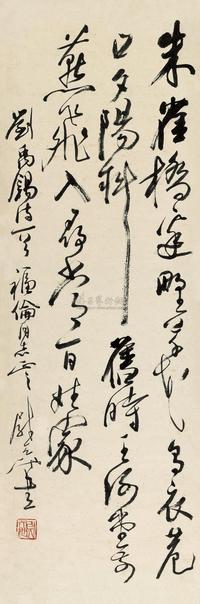 朱雀橋邊野草花烏衣巷
口夕陽斜舊時王謝堂前
燕飛入尋常百姓家
劉禹錫詩一首福倫同志